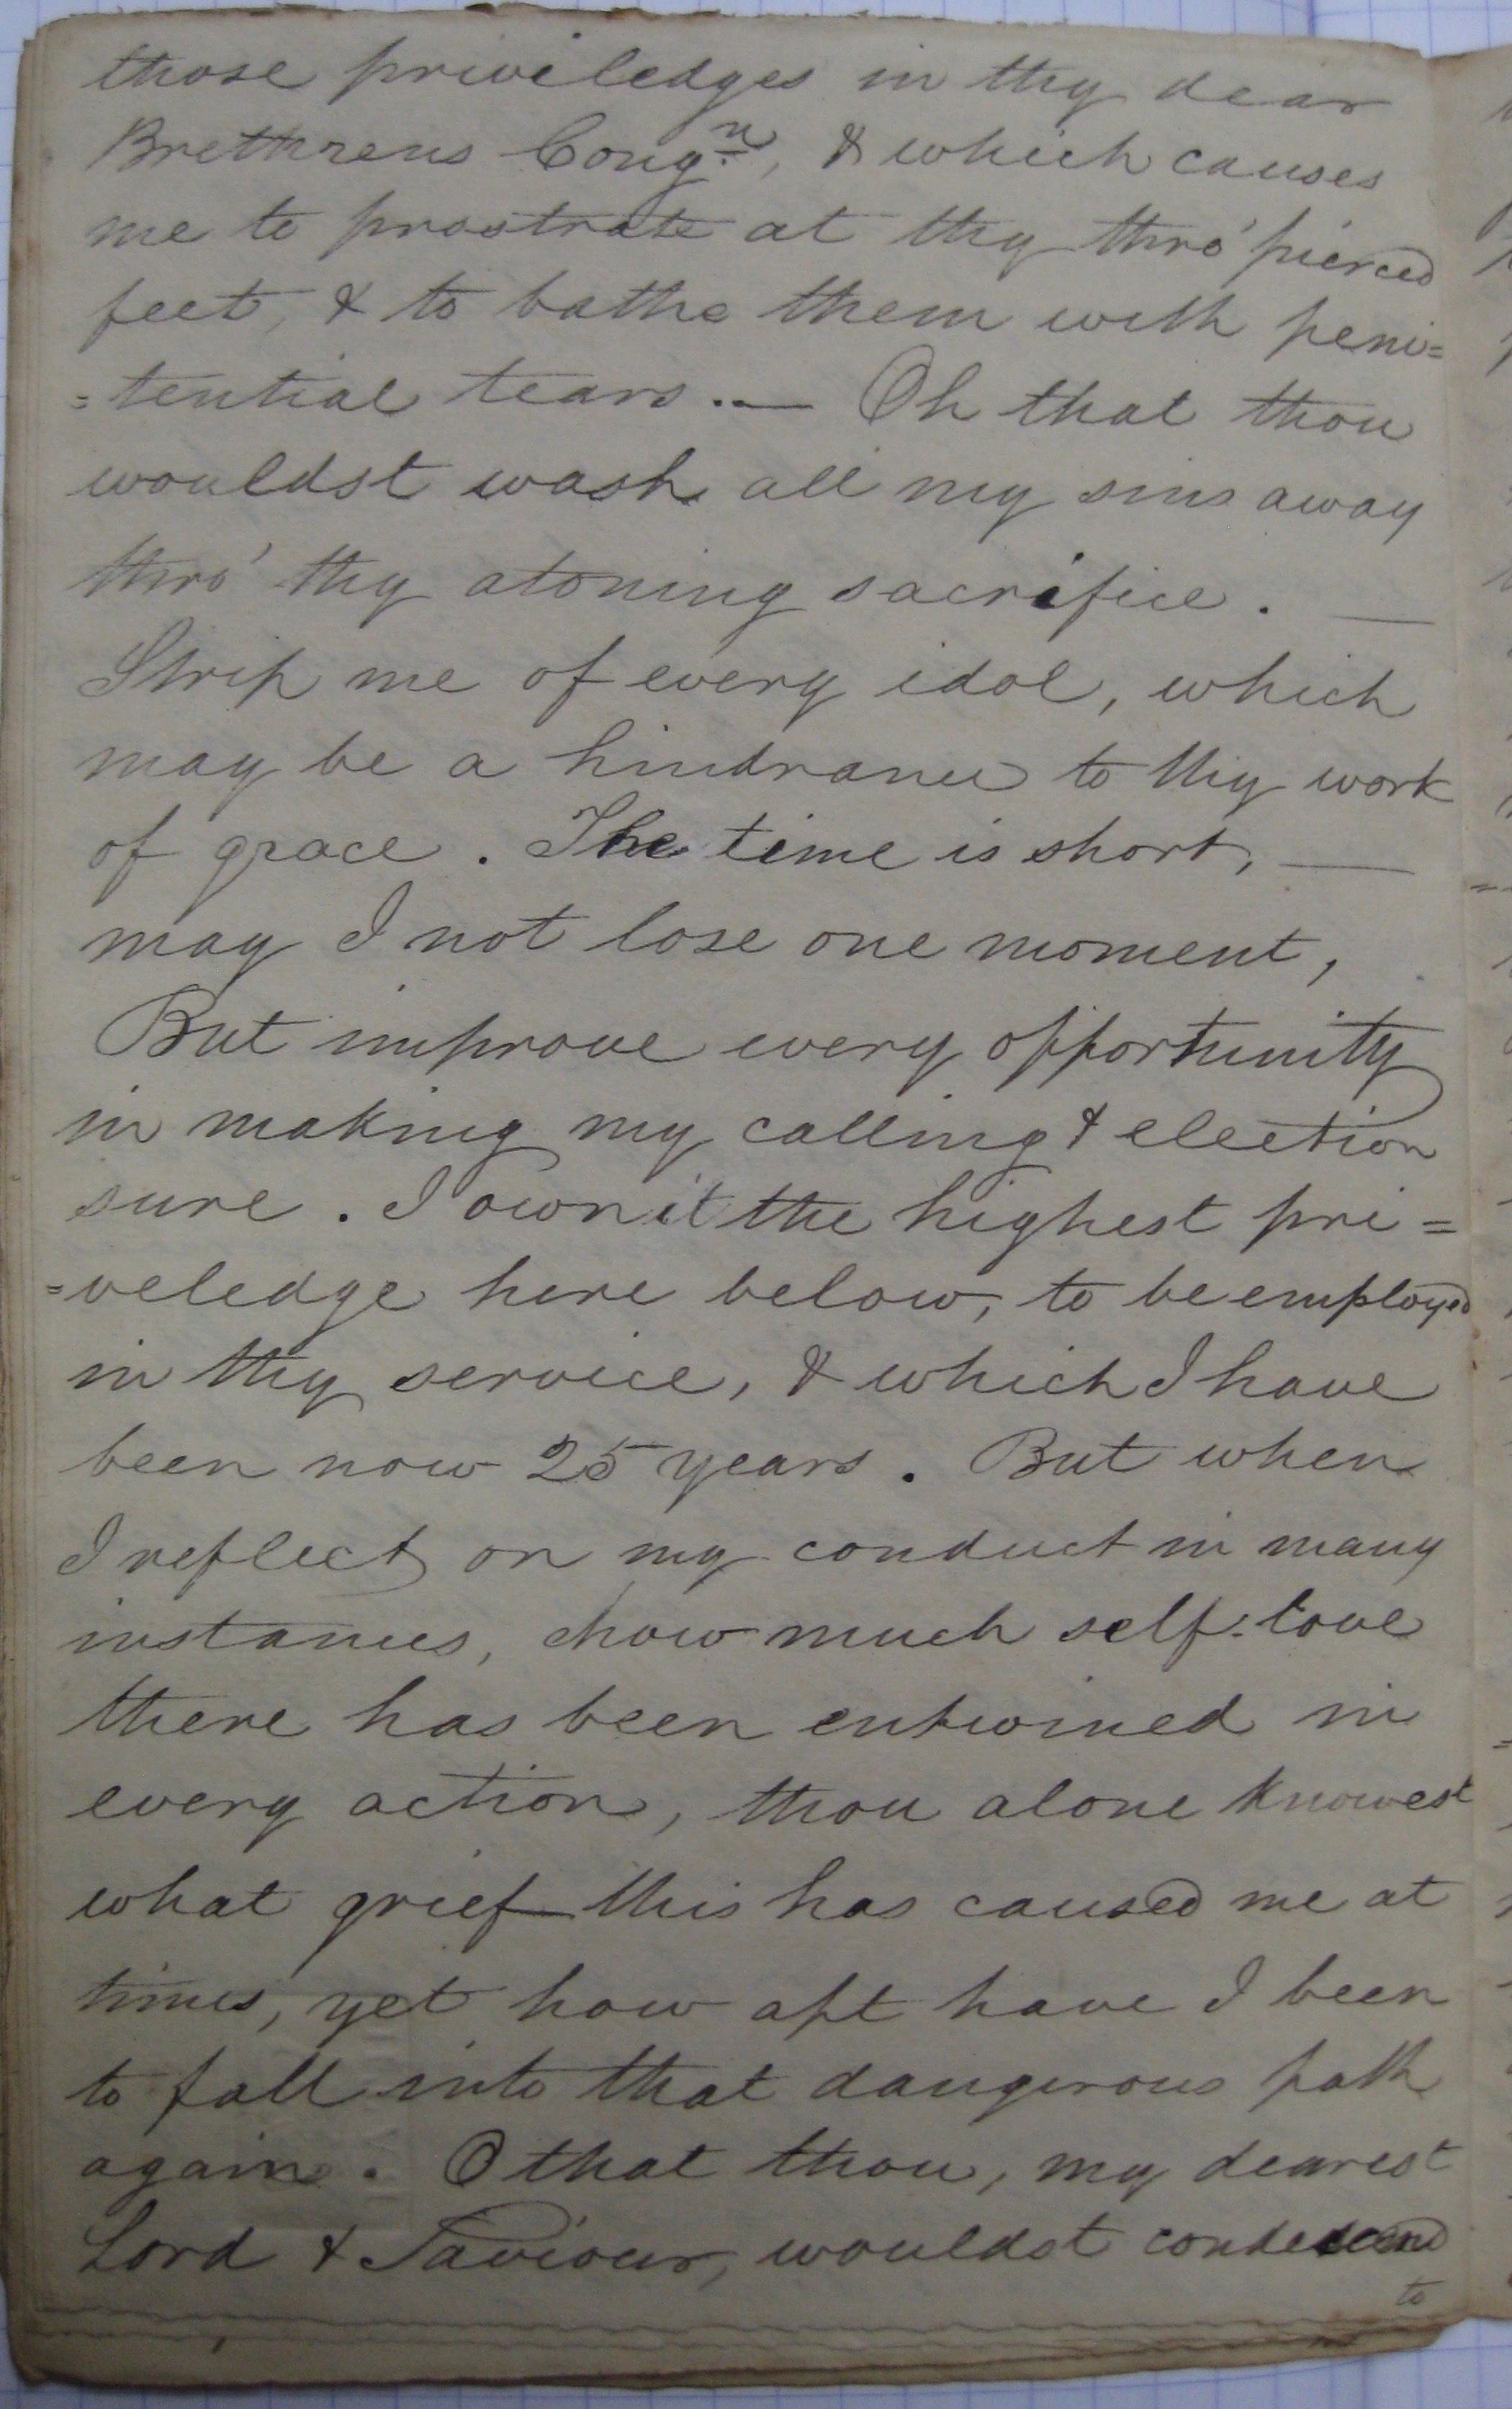 those priviledges in thy dear
Brethrens Cong.n, & which causes
me to prostrate at thy thro' pierced
feet, & to bathe them with peni=
=tential tears. — Oh that thou
wouldst wash all my sins away
thro' thy atoning sacrifice. —
Strip me of every idol, which
may be a hindrance to thy work
of grace. The time is short, —
may I not lose one moment,
But improve every opportunity
in making my calling & election
sure. I own it the highest pri=
=veledge here below, to be employed
in thy service, & which I have
been now 25 years. But when
I reflect on my conduct in many
instances, how much self-love
there has been entwined in
every action, thou alone knowest
what grief this has caused me at
times, yet how apt have I been
to fall into that dangerous path
again. O that thou, my dearest
Lord & Saviour, wouldst condescend
to